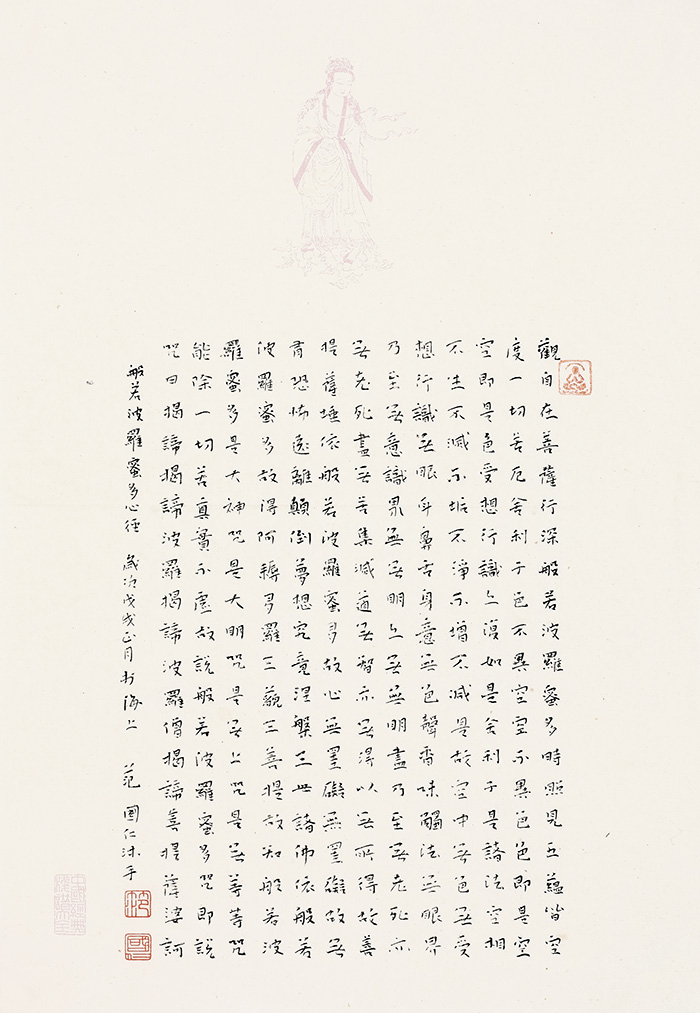 觀自在菩薩行深般若波羅蜜多時照見五蘊皆空
度一切苦厄舍利子色不異空空不異色色即是空
空即是色受想行識亦復如是舍利子是諸法空相
不生不滅不垢不淨不增不減是故空中無色無受
想行識無眼耳鼻舌身意無色聲香味觸法無眼界
乃至無意識界無無明亦無無明盡乃至無老死亦
無老死盡無苦集滅道無智亦無得以無所得故菩
提薩埵依般若波羅蜜多故心無罣礙無罣礙故無
有恐怖遠離顛倒夢想究竟涅槃三世諸佛依般若
波羅蜜多故得阿耨多羅三藐三菩提故知般若波
羅蜜多是大神咒是大明咒是無上咒是無等等咒
能除一切苦真實不虛故說般若波羅蜜多咒即說
咒曰揭諦揭諦波羅揭諦波羅僧揭諦菩提薩婆訶
般若波羅蜜多心經 歲次戊戌正月於海上 范國仁沐手
范